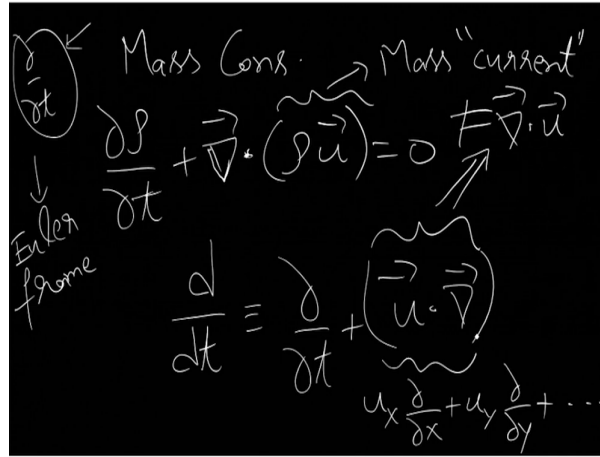 ∂/∂t Mass Cons. Mass "current"
∂ρ/∂t + ∇⃗ · (ρu⃗) = 0 ≠ ∇⃗ · u⃗
Euler
frame
d/dt ≡ ∂/∂t + (u⃗ · ∇⃗)
u_x ∂/∂x + u_y ∂/∂y + ...